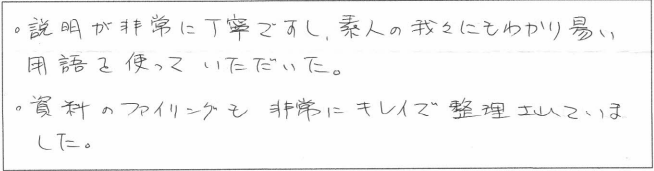 。説明が非常に丁寧ですし、素人の我々にもわかり易い
用語を使っていただいた。
。資料のファイリングも非常にキレイで整理されていま
した。